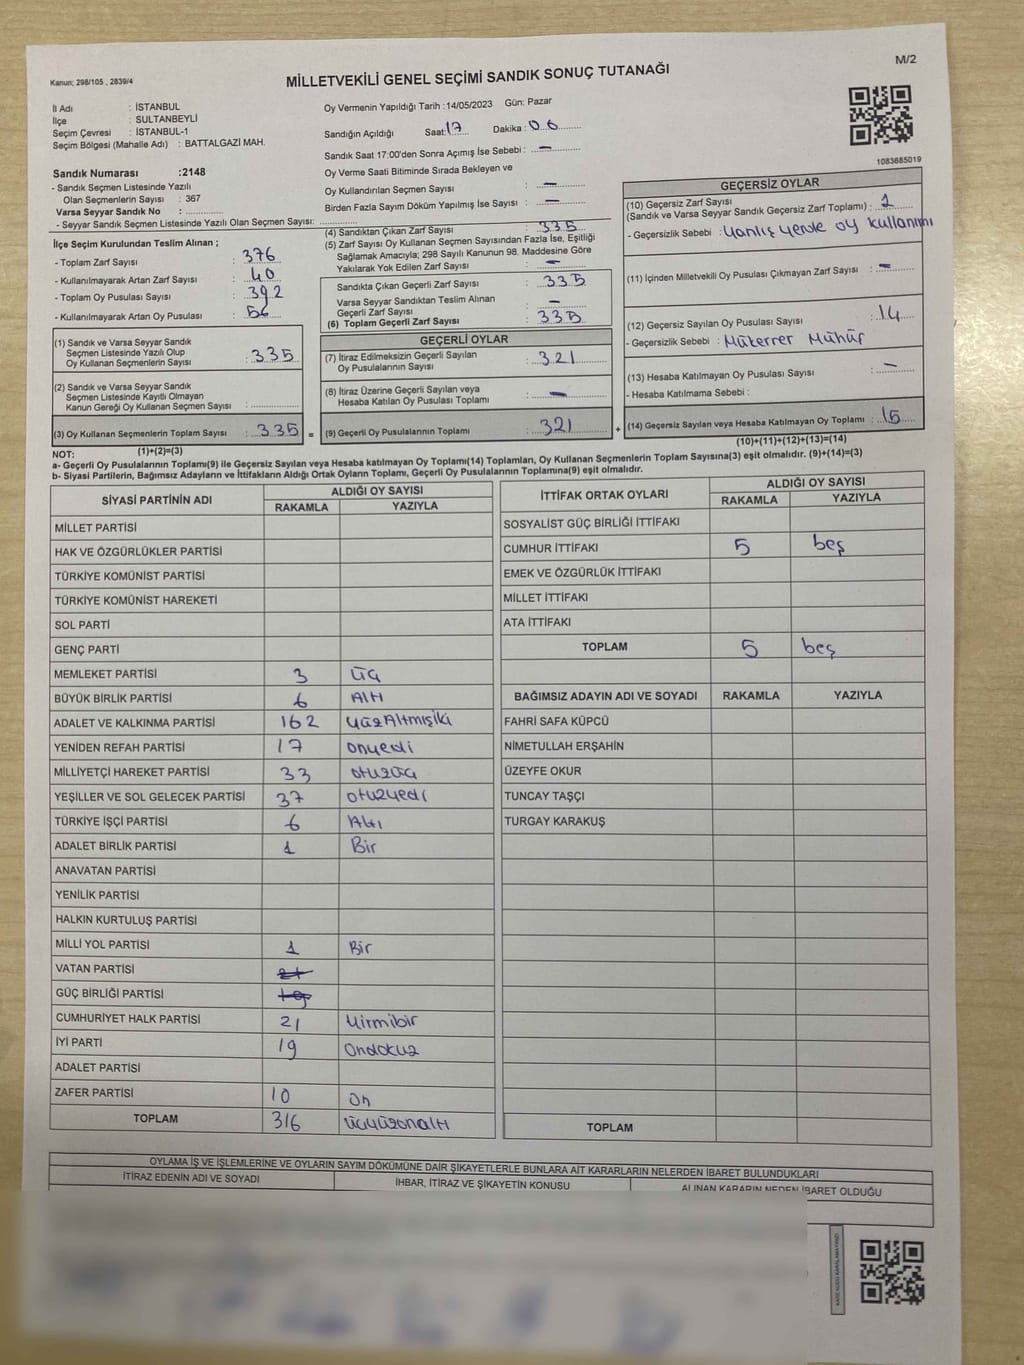 M/2
Kanun; 298/105 , 2839/4
MİLLETVEKİLİ GENEL SEÇİMİ SANDIK SONUÇ TUTANAĞI
İl Adı : İSTANBUL
İlçe : SULTANBEYLİ
Seçim Çevresi : İSTANBUL-1
Seçim Bölgesi (Mahalle Adı) : BATTALGAZİ MAH.
Sandık Numarası :2148
- Sandık Seçmen Listesinde Yazılı
Olan Seçmenlerin Sayısı : 367
Varsa Seyyar Sandık No :
- Seyyar Sandık Seçmen Listesinde Yazılı Olan Seçmen Sayısı:
Oy Vermenin Yapıldığı Tarih :14/05/2023 Gün: Pazar
Sandığın Açıldığı Saat: 17 Dakika : 06
Sandık Saat 17:00'den Sonra Açımış İse Sebebi : —
Oy Verme Saati Bitiminde Sırada Bekleyen ve
Oy Kullandırılan Seçmen Sayısı : —
Birden Fazla Sayım Döküm Yapılmış İse Sayısı : —
1083685019
İlçe Seçim Kurulundan Teslim Alınan ;
- Toplam Zarf Sayısı : 376
- Kullanılmayarak Artan Zarf Sayısı : 40
- Toplam Oy Pusulası Sayısı : 392
- Kullanılmayarak Artan Oy Pusulası : 56
(1) Sandık ve Varsa Seyyar Sandık
Seçmen Listesinde Yazılı Olup
Oy Kullanan Seçmenlerin Sayısı : 335
(2) Sandık ve Varsa Seyyar Sandık
Seçmen Listesinde Kayıtlı Olmayan
Kanun Gereği Oy Kullanan Seçmen Sayısı :
(3) Oy Kullanan Seçmenlerin Toplam Sayısı : 335 =
(4) Sandıktan Çıkan Zarf Sayısı : 335
(5) Zarf Sayısı Oy Kullanan Seçmen Sayısından Fazla İse, Eşitliği
Sağlamak Amacıyla; 298 Sayılı Kanunun 98. Maddesine Göre
Yakılarak Yok Edilen Zarf Sayısı : —
Sandıkta Çıkan Geçerli Zarf Sayısı : 335
Varsa Seyyar Sandıktan Teslim Alınan
Geçerli Zarf Sayısı : —
(6) Toplam Geçerli Zarf Sayısı : 335
GEÇERLİ OYLAR
(7) İtiraz Edilmeksizin Geçerli Sayılan
Oy Pusulalarının Sayısı : 321
(8) İtiraz Üzerine Geçerli Sayılan veya
Hesaba Katılan Oy Pusulası Toplamı : —
(9) Geçerli Oy Pusulalarının Toplamı : 321 +
GEÇERSİZ OYLAR
(10) Geçersiz Zarf Sayısı
(Sandık ve Varsa Seyyar Sandık Geçersiz Zarf Toplamı) : 1
- Geçersizlik Sebebi : Yanlış yerde oy kullanımı
(11) İçinden Milletvekili Oy Pusulası Çıkmayan Zarf Sayısı : —
(12) Geçersiz Sayılan Oy Pusulası Sayısı : 14
- Geçersizlik Sebebi : Mükerrer Mühür
(13) Hesaba Katılmayan Oy Pusulası Sayısı : —
- Hesaba Katılmama Sebebi :
(14) Geçersiz Sayılan veya Hesaba Katılmayan Oy Toplamı : 15
NOT: (1)+(2)=(3) (10)+(11)+(12)+(13)=(14)
a- Geçerli Oy Pusulalarının Toplamı(9) ile Geçersiz Sayılan veya Hesaba katılmayan Oy Toplamı(14) Toplamları, Oy Kullanan Seçmenlerin Toplam Sayısına(3) eşit olmalıdır. (9)+(14)=(3)
b- Siyasi Partilerin, Bağımsız Adayların ve İttifakların Aldığı Ortak Oyların Toplamı, Geçerli Oy Pusulalarının Toplamına(9) eşit olmalıdır.
SİYASİ PARTİNİN ADI ALDIĞI OY SAYISI
RAKAMLA YAZIYLA
MİLLET PARTİSİ
HAK VE ÖZGÜRLÜKLER PARTİSİ
TÜRKİYE KOMÜNİST PARTİSİ
TÜRKİYE KOMÜNİST HAREKETİ
SOL PARTİ
GENÇ PARTİ
MEMLEKET PARTİSİ 3 üç
BÜYÜK BİRLİK PARTİSİ 6 Altı
ADALET VE KALKINMA PARTİSİ 162 yüzAltmışiki
YENİDEN REFAH PARTİSİ 17 onyedi
MİLLİYETÇİ HAREKET PARTİSİ 33 otuzüç
YEŞİLLER VE SOL GELECEK PARTİSİ 37 otuzyedi
TÜRKİYE İŞÇİ PARTİSİ 6 Altı
ADALET BİRLİK PARTİSİ 1 Bir
ANAVATAN PARTİSİ
YENİLİK PARTİSİ
HALKIN KURTULUŞ PARTİSİ
MİLLİ YOL PARTİSİ 1 Bir
VATAN PARTİSİ
GÜÇ BİRLİĞİ PARTİSİ
CUMHURİYET HALK PARTİSİ 21 Yirmibir
İYİ PARTİ 19 Ondokuz
ADALET PARTİSİ
ZAFER PARTİSİ 10 On
TOPLAM 316 üçyüzonaltı
İTTİFAK ORTAK OYLARI ALDIĞI OY SAYISI
RAKAMLA YAZIYLA
SOSYALİST GÜÇ BİRLİĞİ İTTİFAKI
CUMHUR İTTİFAKI 5 beş
EMEK VE ÖZGÜRLÜK İTTİFAKI
MİLLET İTTİFAKI
ATA İTTİFAKI
TOPLAM 5 beş
BAĞIMSIZ ADAYIN ADI VE SOYADI RAKAMLA YAZIYLA
FAHRİ SAFA KÜPCÜ
NİMETULLAH ERŞAHİN
ÜZEYFE OKUR
TUNCAY TAŞÇI
TURGAY KARAKUŞ
TOPLAM
OYLAMA İŞ VE İŞLEMLERİNE VE OYLARIN SAYIM DÖKÜMÜNE DAİR ŞİKAYETLERLE BUNLARA AİT KARARLARIN NELERDEN İBARET BULUNDUKLARI
İTİRAZ EDENİN ADI VE SOYADI İHBAR, İTİRAZ VE ŞİKAYETİN KONUSU ALINAN KARARIN NEDEN İBARET OLDUĞU
KARE KODU KARALAMAYINIZ!